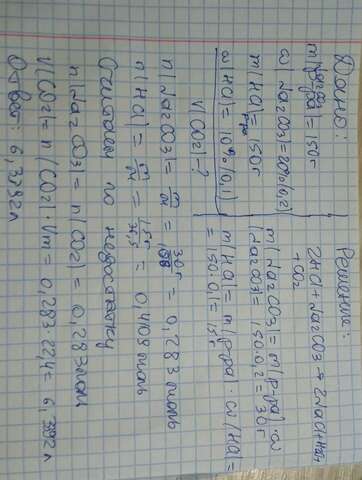 Дано:
m(р-ра Na2CO3) = 150 г
ω(Na2CO3) = 20% (0,2)
m(HCl) р-ра = 150 г
ω(HCl) = 10% (0,1)
V(CO2) - ?
Решение:
2HCl + Na2CO3 → 2NaCl + H2O
+ CO2
m(Na2CO3) = m(р-ра) · ω
(Na2CO3) = 150 · 0,2 = 30 г
m(HCl) = m(р-ра) · ω(HCl) =
= 150 · 0,1 = 15 г
n(Na2CO3) = m/M = 30 г/106 = 0,283 моль
n(HCl) = m/M = 15 г/36,5 = 0,408 моль
Считаем по недостатку
n(Na2CO3) = n(CO2) = 0,283 моль
V(CO2) = n(CO2) · Vm = 0,283 · 22,4 = 6,3392 л
Ответ: 6,3392 л